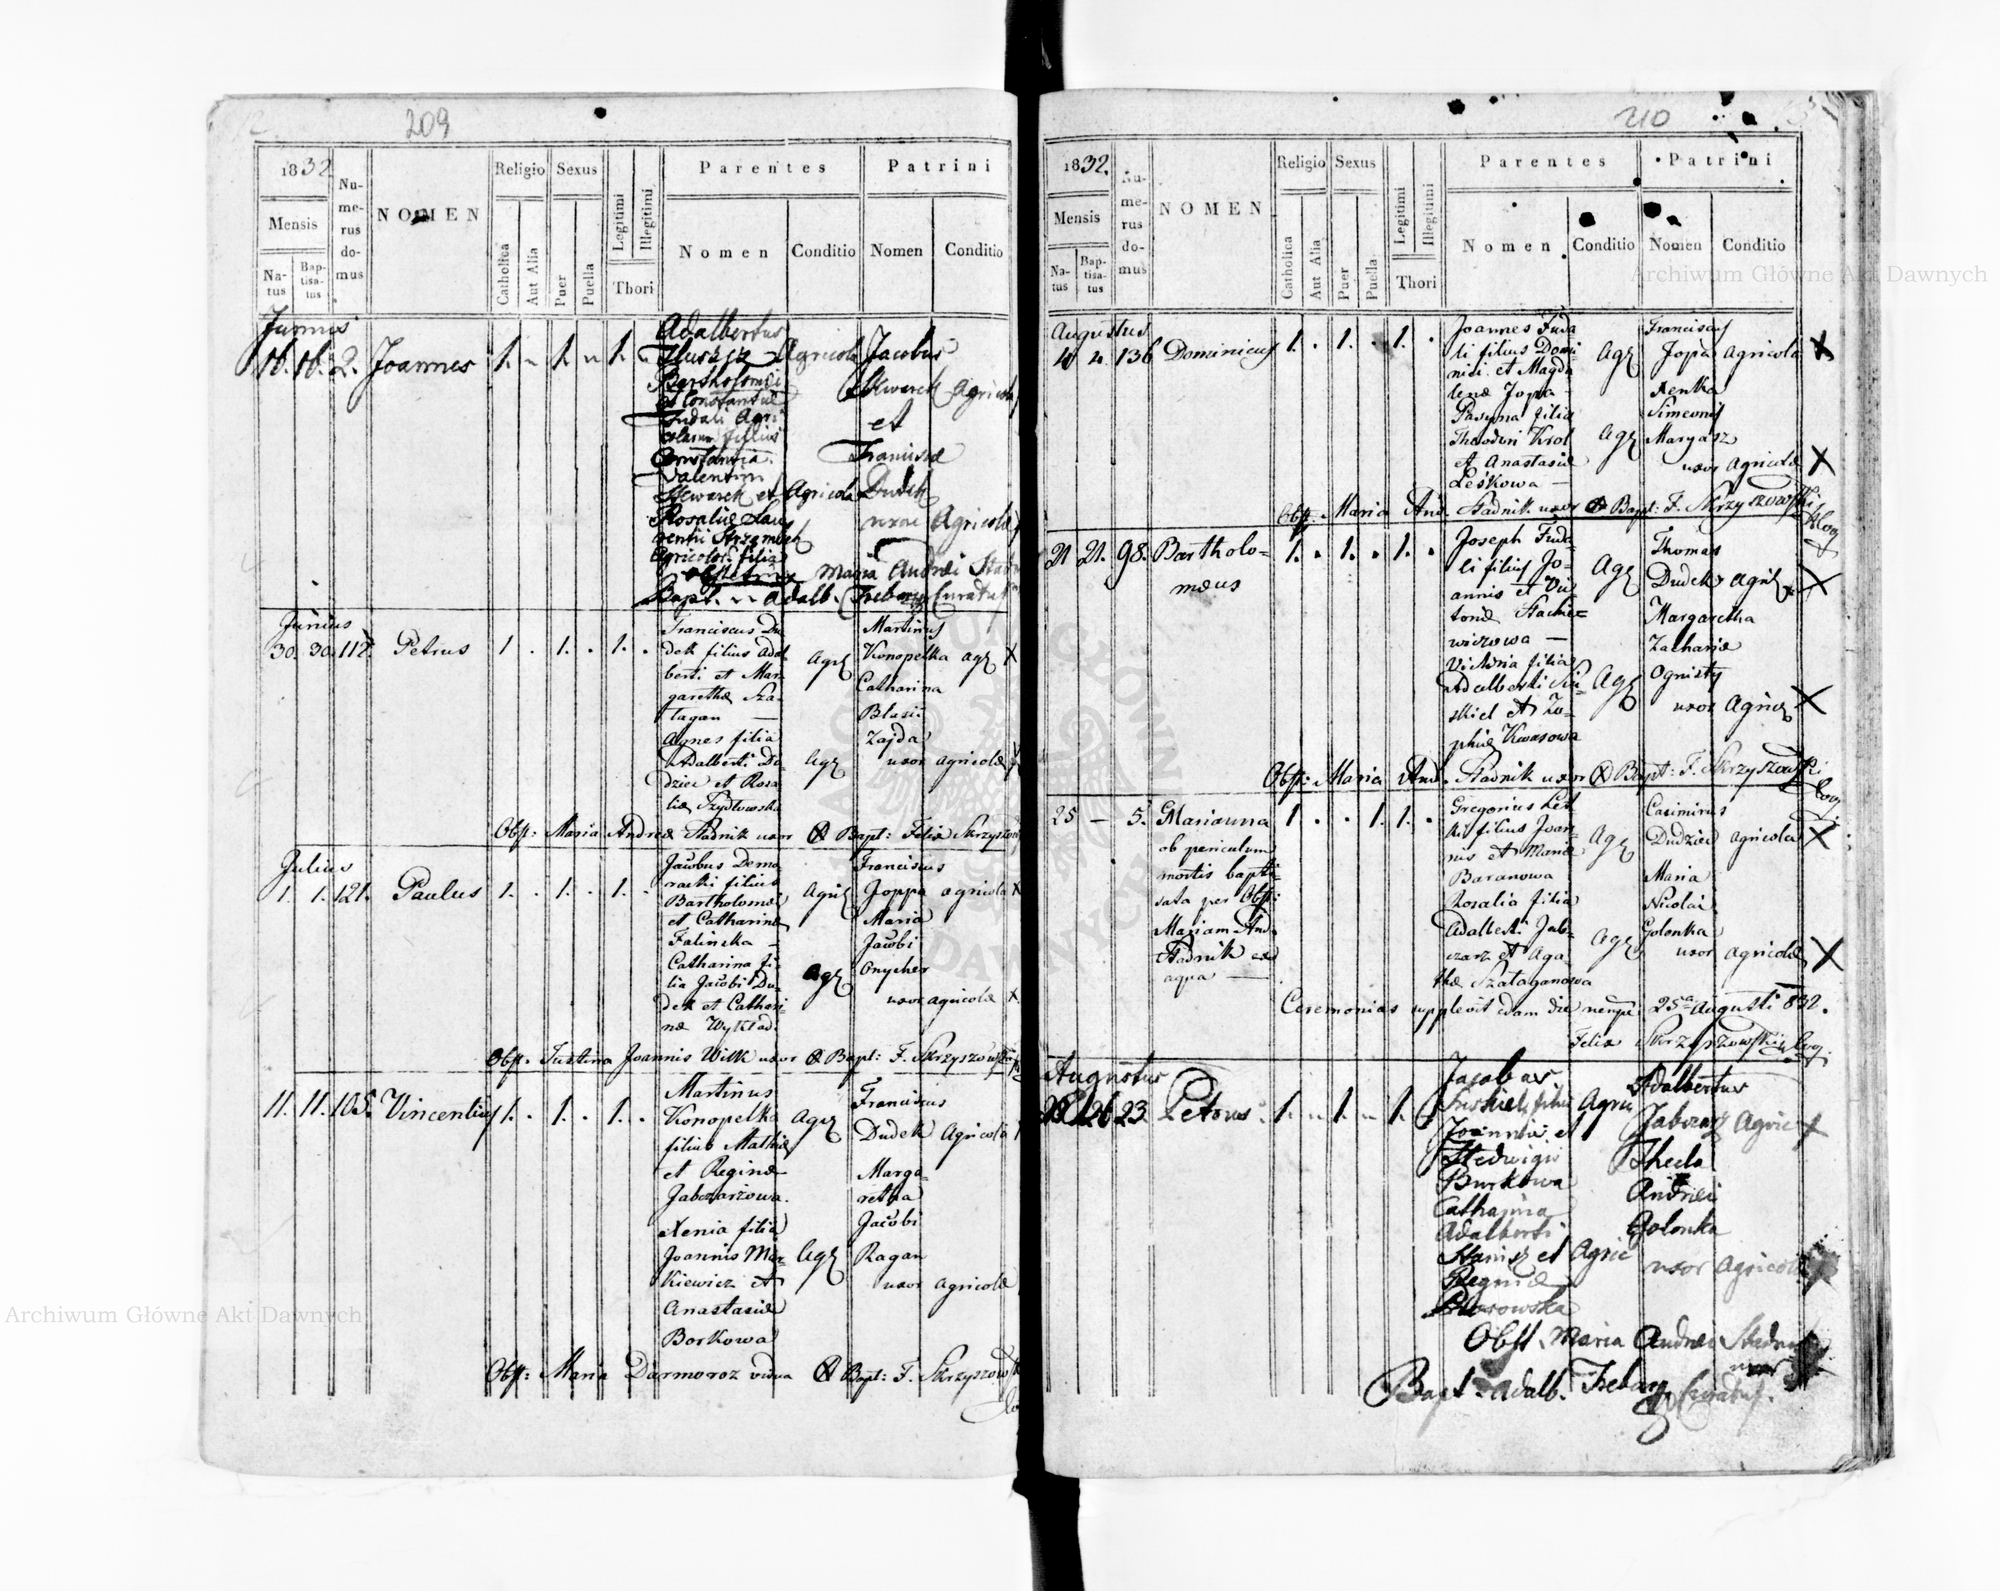 209
1832
Mensis
Na-
tus
Bap-
tisa-
tus
Nu-
me-
rus
do-
mus
NOMEN
Religio
Catholica
Aut Alia
Sexus
Puer
Puella
Legitimi
Illegitimi
Thori
Parentes
Nomen
Conditio
Patrini
Nomen
Conditio
Junius
16. 16. 2. Joannes 1. 1. 1.
Adalbertus
Agricola
Bartholomei
et Constantiae
Fudali Agri
colarum filius
Constantia
Valentini
Skwarek et Agricola
Rosaliae Lau
rentii Strzembek
Agricolae filia
Jacobus
Skwarek Agricola
et
Francisca
Dudek
uxor Agricolae
Obstetrix Maria Andreae
Bapt. Adalb. Trebacz Curatus
Junius
30. 30. 112. Petrus 1. 1. 1.
Franciscus Du
dek filius Adal
berti et Mar
garethae Sza-
tagan —
Agnes filia
Adalberti Du-
dziec et Rosa
liae Szydlowska
Agr
Agr
Martinus
Konopelka agr X
Catharina
Blasii
Zajda
uxor agricolae
Obst: Maria Andreae Stadnik uxor Bapt: Felix Skrzyszow
Julius
1. 1. 121. Paulus 1. 1. 1.
Jacobus Doma
racki filius
Bartholomei
et Catharinae
Falinska —
Catharina fi-
lia Jacobi Du-
dek et Cathari
nae Wyklad.
Agric
Agr
Franciscus
Joppa agricola X
Maria
Jacobi
Onycher
uxor agricolae X
Obst. Justina Joannis Wilk uxor Bapt: F. Skrzyszowski
11. 11. 105. Vincentius 1. 1. 1.
Martinus
Konopelka
filius Mathiae
et Reginae
Jabczarzowa.
Xenia filia
Joannis Mar-
kiewicz et
Anastasiae
Borkowa
Agr
Agr
Franciscus
Dudek Agricola
Marga-
retha
Jacobi
Ragan
uxor agricolae
Obst: Maria Darmoroz vidua Bapt: F. Skrzyszow
210
1832.
Mensis
Na-
tus
Bap-
tisa-
tus
Nu-
me-
rus
do-
mus
NOMEN
Religio
Catholica
Aut Alia
Sexus
Puer
Puella
Legitimi
Illegitimi
Thori
Parentes
Nomen
Conditio
Patrini
Nomen
Conditio
Augustus
4 4. 136 Dominicus 1. 1. 1.
Joannes Fuda
li filius Domi
nici et Magda
lenae Jopa —
Paryna filia
Theodori Krol
et Anastasiae
Leśkowa —
Agr
Agr
Franciscus
Jopa agricola X
Xenka
Simeonis
Maryasz
uxor agricolae X
Obst. Maria And. Stadnik uxor Bapt: F. Skrzyszowski
21 21. 98. Bartholo-
maeus 1. 1. 1.
Joseph Fuda-
li filius Jo-
annis et Vic-
toriae Stachie-
wiczowa —
Victoria filia
Adalberti Su-
skiel et Zo-
phiae Kwasowa
Agr
Agr
Thomas
Dudek Agric X
Margaretha
Zachariae
Ognisty
uxor Agric X
Obst: Maria And. Stadnik uxor Bapt: F. Skrzyszowski
25 — 5. Marianna 1. 1. 1.
ob periculum
mortis bapti-
sata per Obst:
Mariam And.
Stadnik ex
aqua —
Gregorius Les
ki filius Joan-
nis et Mariae
Baranowa
Rosalia filia
Adalberti Jab-
czarz et Aga-
thae Szataganowa
Agr
Agr
Casimirus
Dudziec agricola X
Maria
Nicolai
Golonka
uxor agricolae X
Ceremonias supplevit eadem die nempe 25ta Augusti 832.
Felix Skrzyszowski
Augustus
26 23 Petrus 1. 1. 1.
Jacobus
Suskiel filius Agric
Joannis et
Hedwigis
Burkowa
Catharina
Adalberti
Stanisz et Agric
Reginae
Adalbertus
Jabczarz Agric X
Thecla
Andreae
Golonka
uxor agricolae
Obst. Maria Andreae Stadnik
uxor
Bapt. Adalb. Trebacz Curatus.
Archiwum Główne Akt Dawnych
Archiwum Główne Akt Dawnych